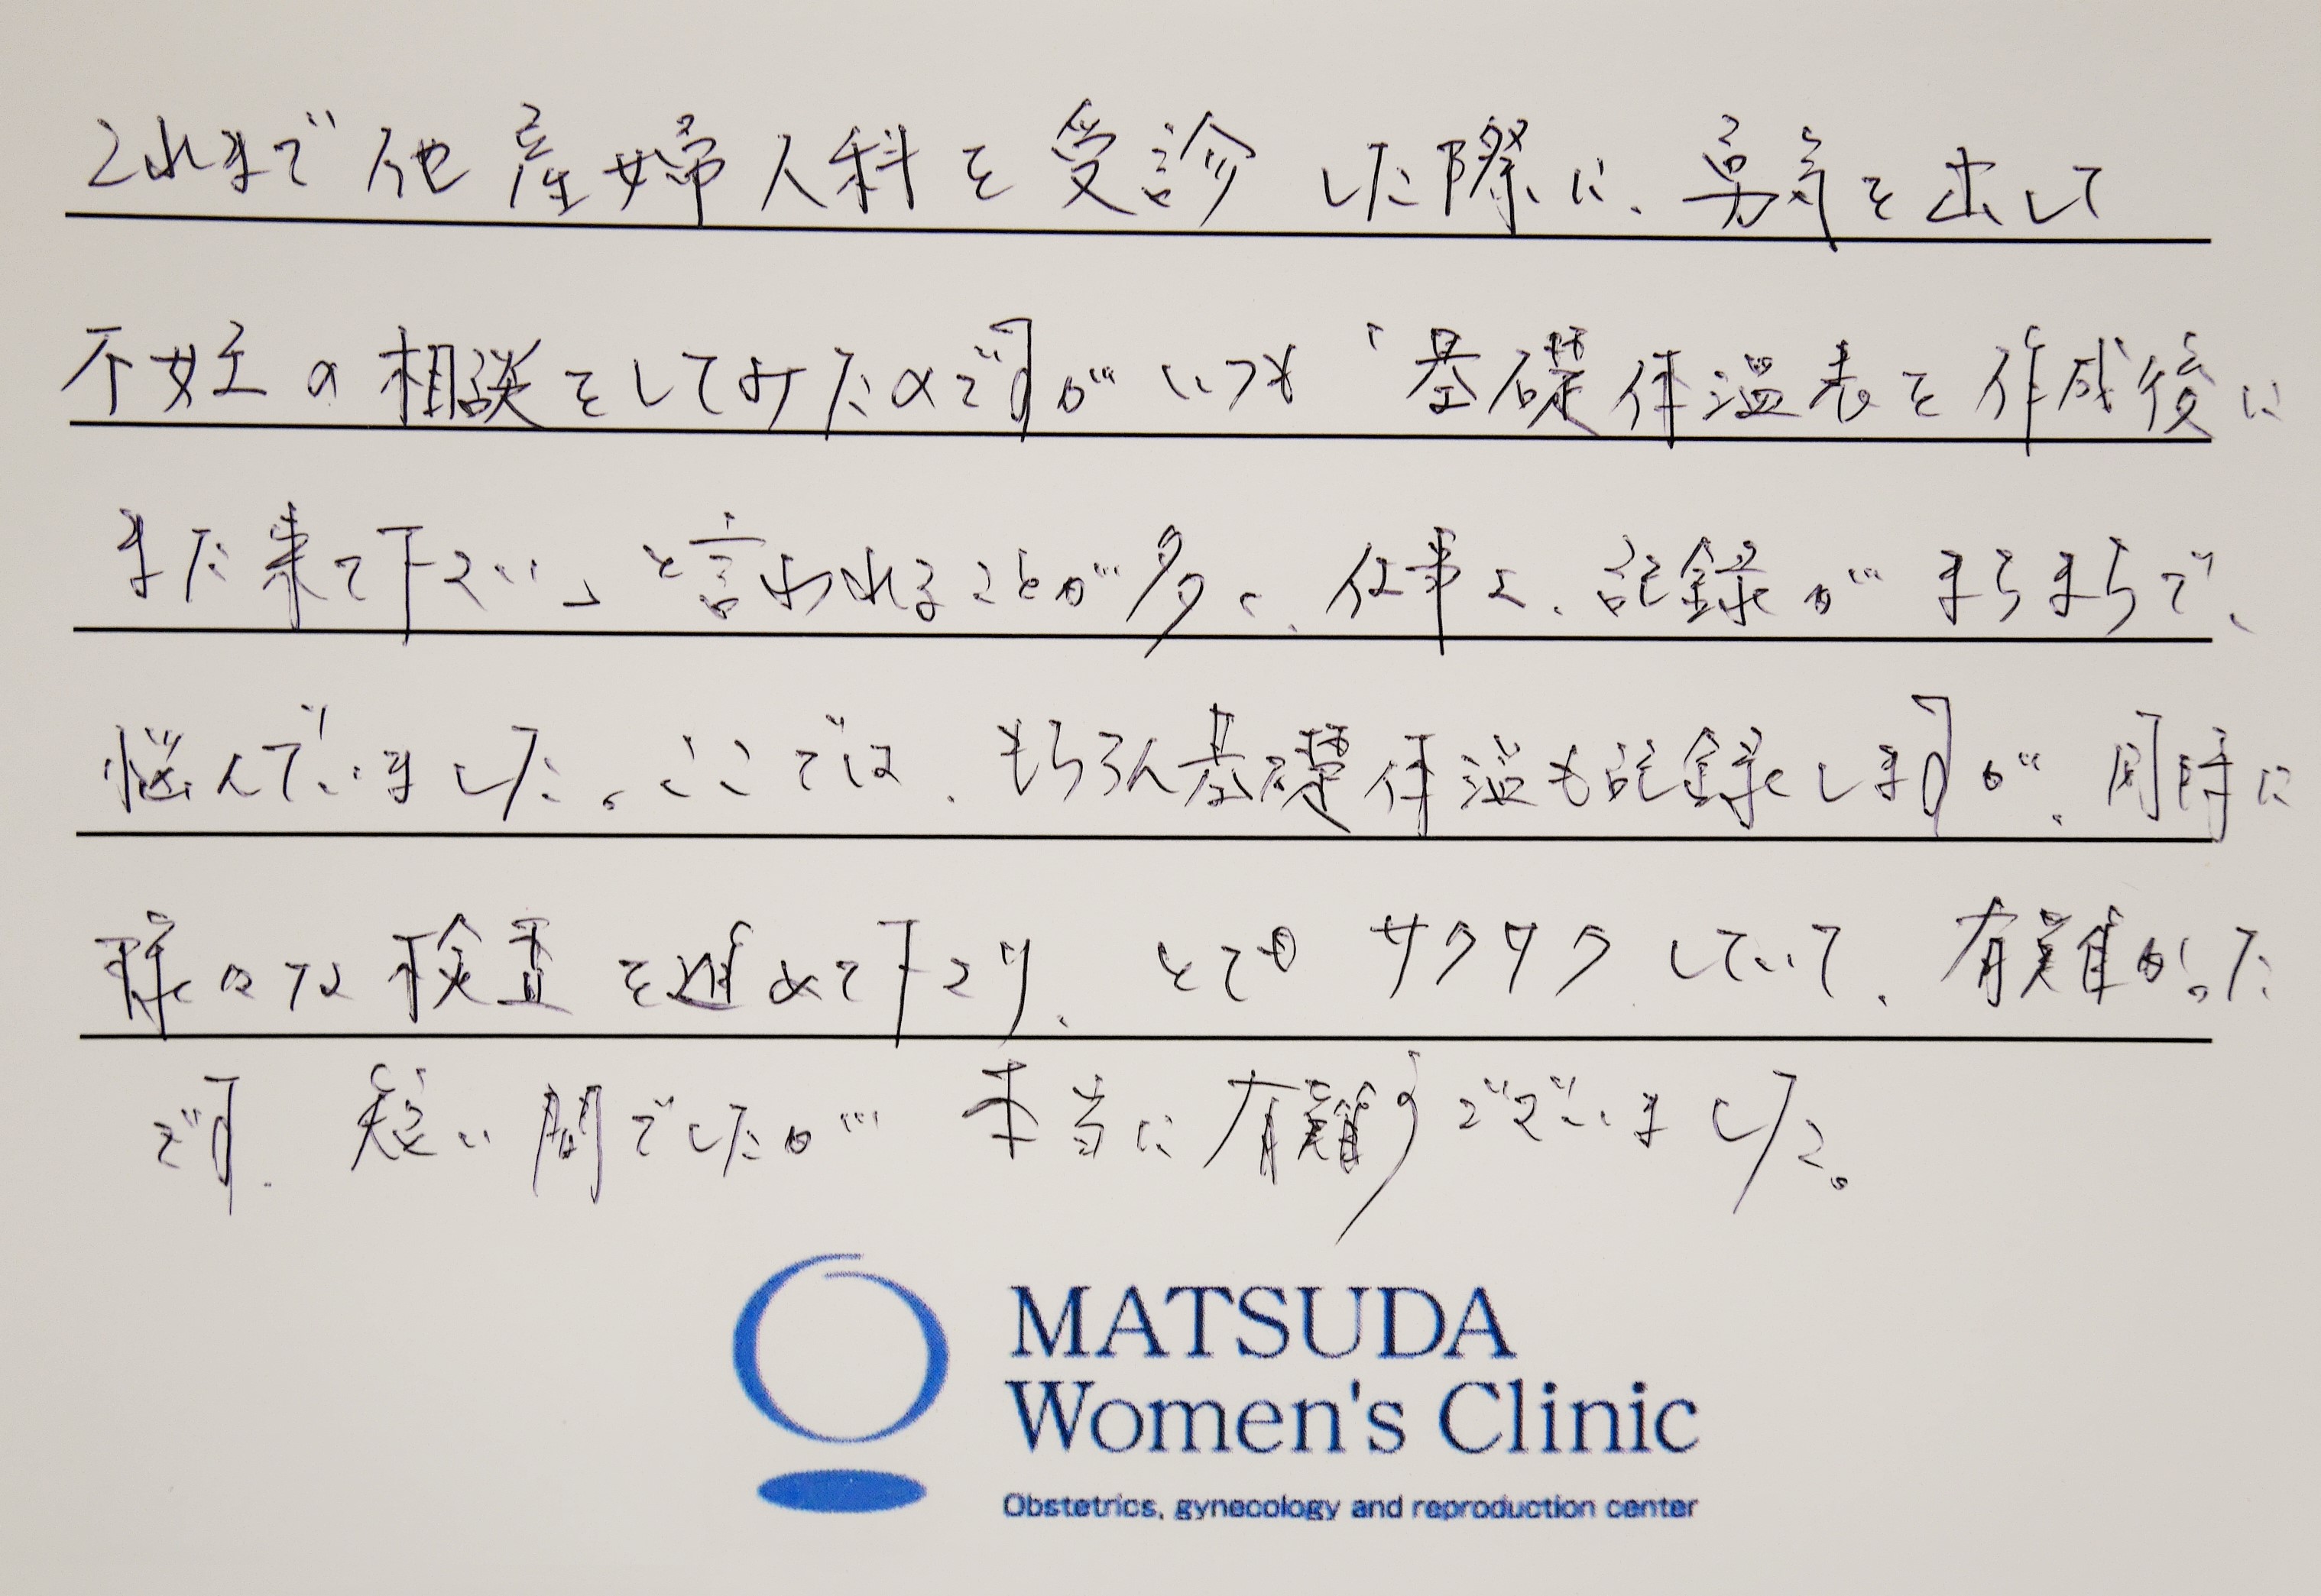 これまで他産婦人科を受診した際に、勇気を出して
不妊の相談をしてみたのですがいつも「基礎体温表を作成後に
また来て下さい」と言われることが多く、仕事で、記録がまちまちで、
悩んでいました。ここでは、もちろん基礎体温も記録しますが、同時に
様々な検査を進めて下さり、とてもサクサクしていて、有難かった
です。短い間でしたが本当に有難うございました。
MATSUDA
Women's Clinic
Obstetrics, gynecology and reproduction center